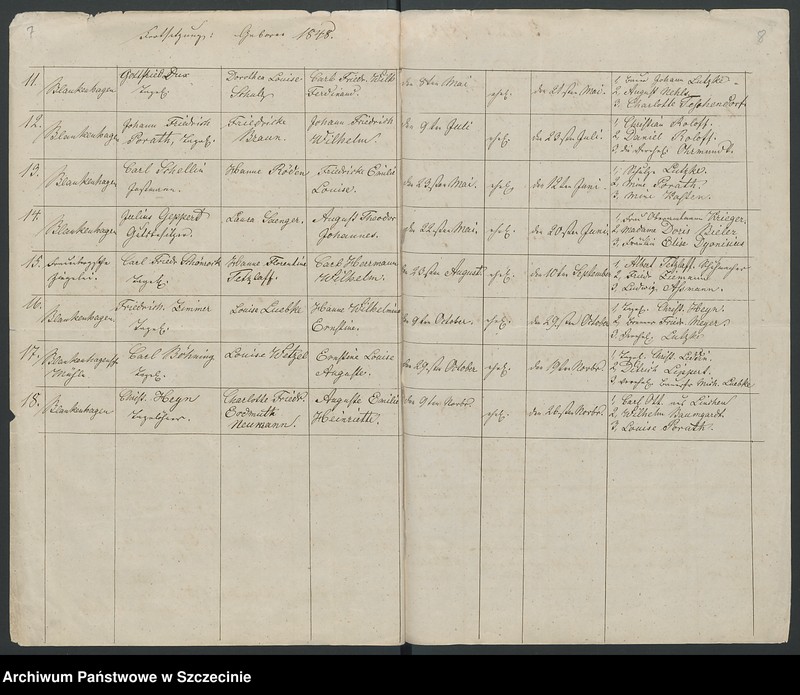 7
8
Fortsetzung: Geboren 1848.
11.
Blankenhagen
Gottlieb Dux
Tagel.
Dorothea Louise
Schulz
Carl Friedr. Wilh.
Ferdinand.
den 8ten Mai
ehel.
den 21sten Mai.
1, Johann Lutzke
2, August Nehls
3, Charlotte
12.
Blankenhagen
Johann Friedrich
Porath, Tagel.
Friedricke
Braun.
Johann Friedrich
Wilhelm.
den 9ten Juli
ehel.
den 23sten Juli.
1, Christian Roloff.
2, Daniel Roloff.
3, die Ehrmundt.
13.
Blankenhagen
Carl Schellin
Hanne Röden
Friedricke Emilie
Louise.
den 23sten Mai.
ehel.
den 12ten Juni.
1, Lutzke.
2, Mine Porath.
3, Mine
14.
Blankenhagen
Julius Geppert
Gutsbesitzer.
Laura Saenger.
August Theodor
Johannes.
den 22sten Mai.
ehel.
den 20sten Juni.
1, Frau Krieger.
2, Madame Doris Bieler
3, Fräulein Elise Dyonisius
15.
Ziegelei.
Carl Friedr.
Tagel.
Hanne Florentine
Tetzlaff.
Carl Herrmann
Wilhelm.
den 23sten August.
ehel.
den 10ten September
1, Albert Tetzlaff.
2, Fried. Ziemann
3, Ludwig Assmann.
16.
Blankenhagen.
Friedrich Zimmer
Tagel.
Louise Luebke
Hanne Wilhelmine
Ernstine.
den 9ten October.
ehel.
den 29sten October
1, Tagel. Christ. Heyn.
2, Friedr. Meyer.
3, Lutzke
17.
Blankenhagensche
Mühle
Carl Böhning
Tagel.
Louise Wetzel
Ernstine Louise
Auguste.
den 29sten October
ehel.
den 19ten Novbr.
1, Tagel. Christ. Lüdke.
2, Dietrich Lippert.
3, Mich. Luebke
18.
Blankenhagen
Christ. Heyn
Charlotte Friedr.
Erdmuth
Neumann.
Auguste Emilie
Heinriette.
den 9ten Novbr.
ehel.
den 26sten Novbr.
1, Carl Ott aus
2, Wilhelm Baumgardt.
3, Louise Porath.
Archiwum Państwowe w Szczecinie